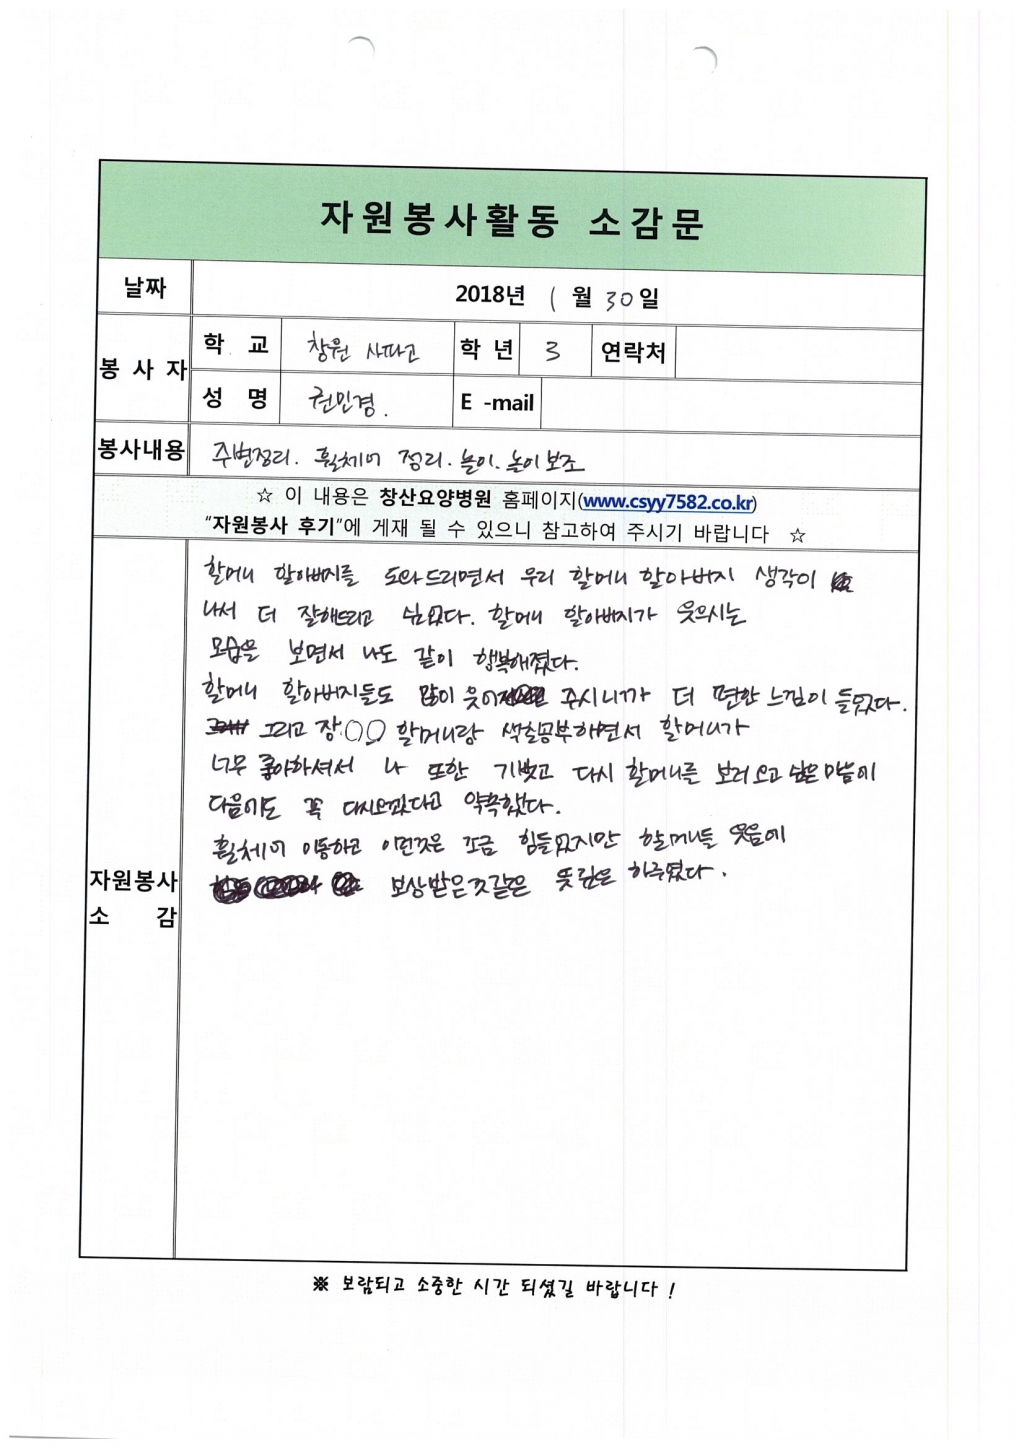 자원봉사활동 소감문
날짜 2018년 1월 30일
봉사자 학교 창원 사파고 학년 3 연락처
성명 권민경. E-mail
봉사내용 주변정리. 휠체어 정리. 놀이. 놀이보조
☆ 이 내용은 창산요양병원 홈페이지(www.csyy7582.co.kr)
“자원봉사 후기”에 게재 될 수 있으니 참고하여 주시기 바랍니다 ☆
자원봉사 소감
할머니 할아버지를 도와드리면서 우리 할머니 할아버지 생각이
나서 더 잘해드리고 싶었다. 할머니 할아버지가 웃으시는
모습을 보면서 나도 같이 행복해졌다.
할머니 할아버지들도 많이 웃어 주시니까 더 편한 느낌이 들었다.
그리고 장○○ 할머니랑 색칠공부하면서 할머니가
너무 좋아하셔서 나 또한 기뻤고 다시 할머니를 보러 오고 싶은 마음에
다음에도 꼭 다시오겠다고 약속했다.
휠체어 이동하고 이런것은 조금 힘들었지만 할머니들 웃음에
보상받은것같은 뜻깊은 하루였다.
※ 보람되고 소중한 시간 되셨길 바랍니다 !